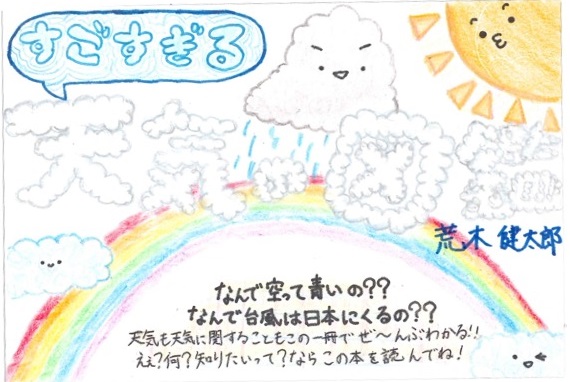 すごすぎる
天気の図鑑
荒木健太郎
なんで空って青いの??
なんで台風は日本にくるの??
天気も天気に関することもこの一冊でぜ〜んぶわかる!!
えぇ?何?知りたいって?ならこの本を読んでね!